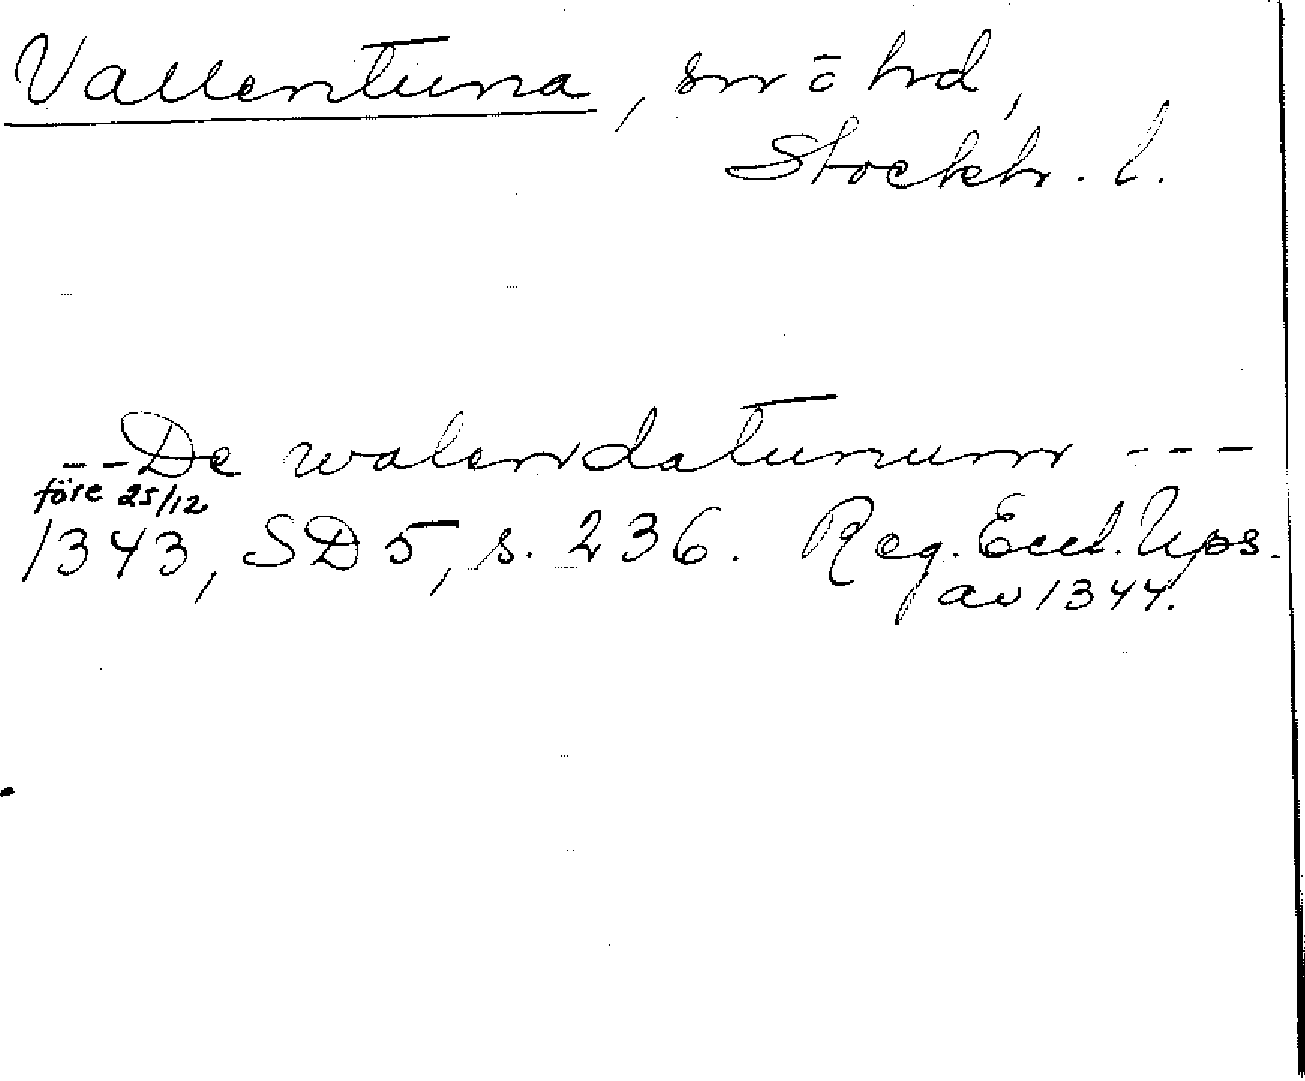 Vallentuna, sn o hd,
Stockh. l.
-- De walendatunum ---
före 25/12
1343, SD 5, s. 236. Reg. Eccl. Ups.
av 1344.